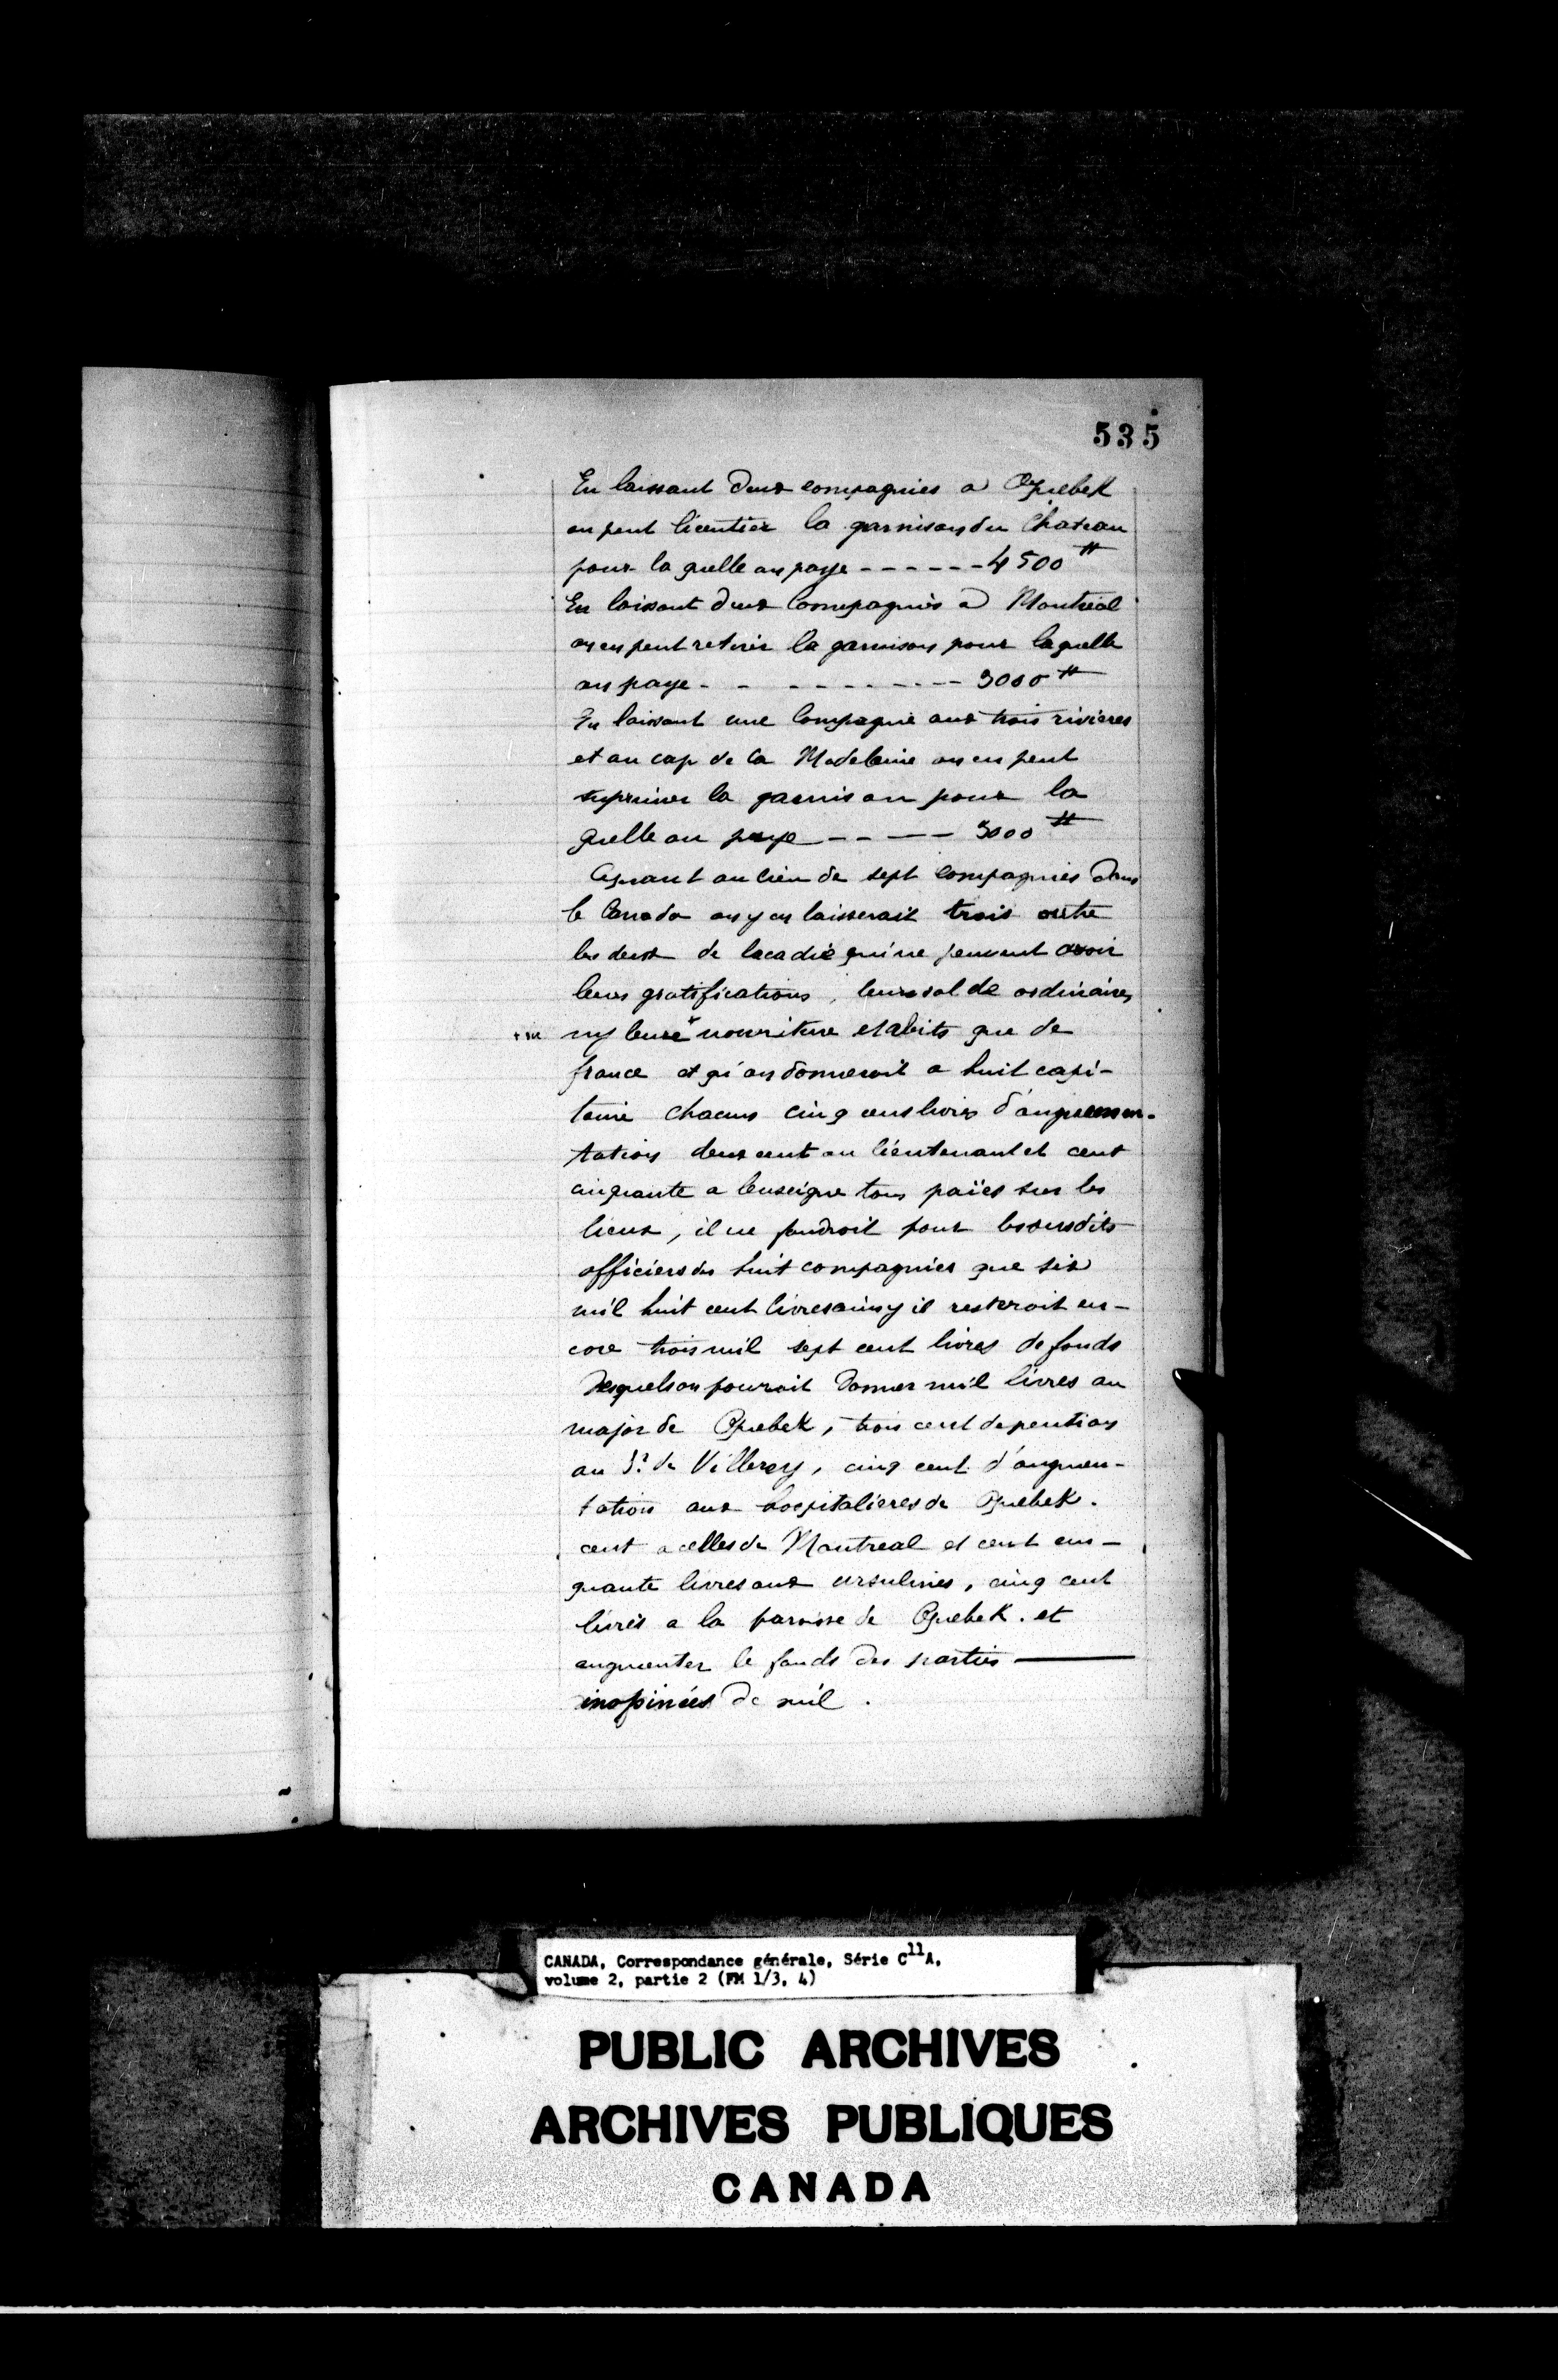 535
En laissant deux compagnies a Quebek
on peut licentier la garnison du Chateau
pour la quelle on paye ------ 4500 ₶
En laissant deux Compagnies a Montreal
on en peut retirer la garnison pour laquelle
on paye - - - - - - - - - 3000 ₶
En laissant une Compagnie aux trois rivieres
et au cap de la Madeleine on en peut
suprimer la garnison pour la
quelle on paye ----- 3000 ₶
au lieu de sept compagnies dans
le Canada on y en laisserait trois outre
les deux de lacadie qui ne peuvent avoir
leurs gratifications, leur solde ordinaires
ny leure nourriture et abits que de
france et qu'on donneroit a huit capi-
taine chacun cinq cens livres d'augmen-
tation deux cent au lieutenant et cent
cinquante a lenseigne tous païes sur les
lieux, il ne faudroit pour les susdits
officiers des huit compagnies que six
mil huit cent livres ainsy il resteroit en-
core trois mil sept cent livres de fonds
desquels on pouroit donner mil livres au
major de Quebek, trois cent de pention
au Sr. de Villeray, cinq cent d'augmen-
tation aux hospitalieres de Quebek.
cent a celles de Montreal et cent cin-
quante livres aux ursulines, cinq cent
livres a la paroisse de Quebek. et
augmenter le fonds des parties
inopinées de mil.
CANADA, Correspondance générale, Série C11A,
volume 2, partie 2 (FM 1/3, 4)
PUBLIC ARCHIVES
ARCHIVES PUBLIQUES
CANADA